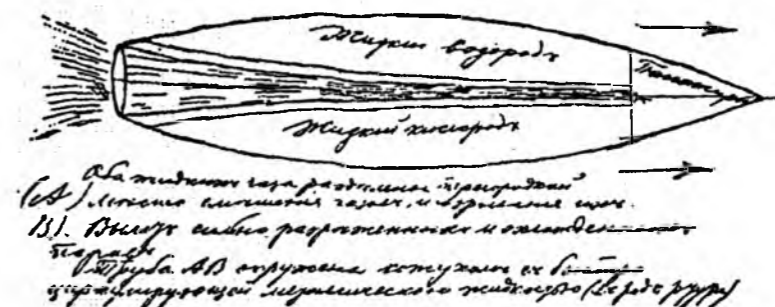 Жидкий водородъ
Пассажиры
Жидкий кислородъ
Оба жидкие газа разделены перегородкой
(A) Место смешения газов и взрывания их.
(B). Вылет сильно разреженных и охлажденных
паров
Труба AB окружена кожухом с быстро
циркулирующей металлическою жидкостью